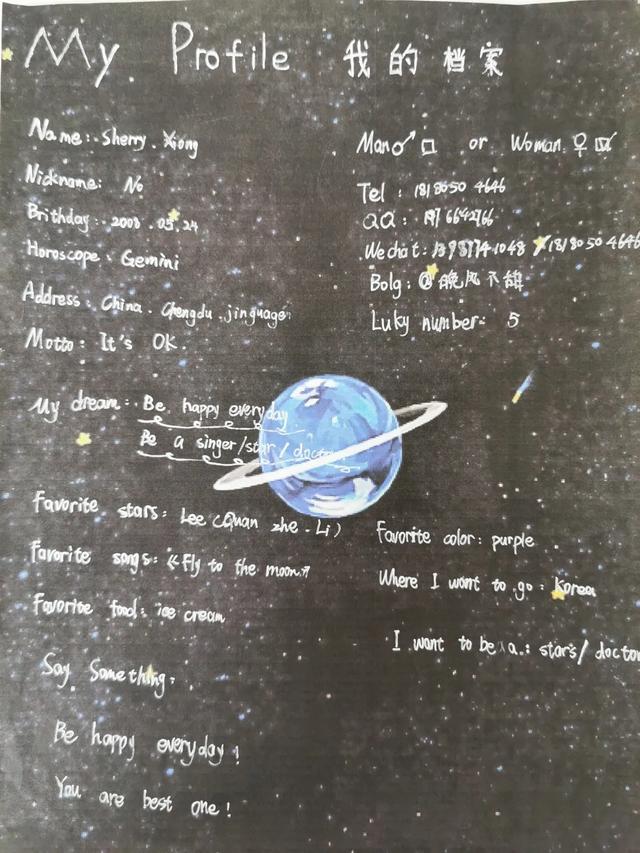 My Profile 我的档案
Name: Sherry. Xiong
Man♂ □ or Woman ♀ ☑
Nickname: No
Tel: 181 8050 4646
Brithday: 2008.05.24
QQ:
Horoscope: Gemini
Wechat: / 181 8050 4646
Address: China. Chengdu. jinguage
Bolg: @晚风不
Motto: It's OK.
Luky number: 5
My dream: Be happy everyday
Be a singer/star/doctor
Favorite stars: Lee (Quan zhe. Li)
Favorite color: purple
Favorite songs: 《Fly to the moon》
Where I want to go: Korea
Favorite food: ice cream
I want to be a: stars/doctor
Say Something:
Be happy everyday!
You are best one!